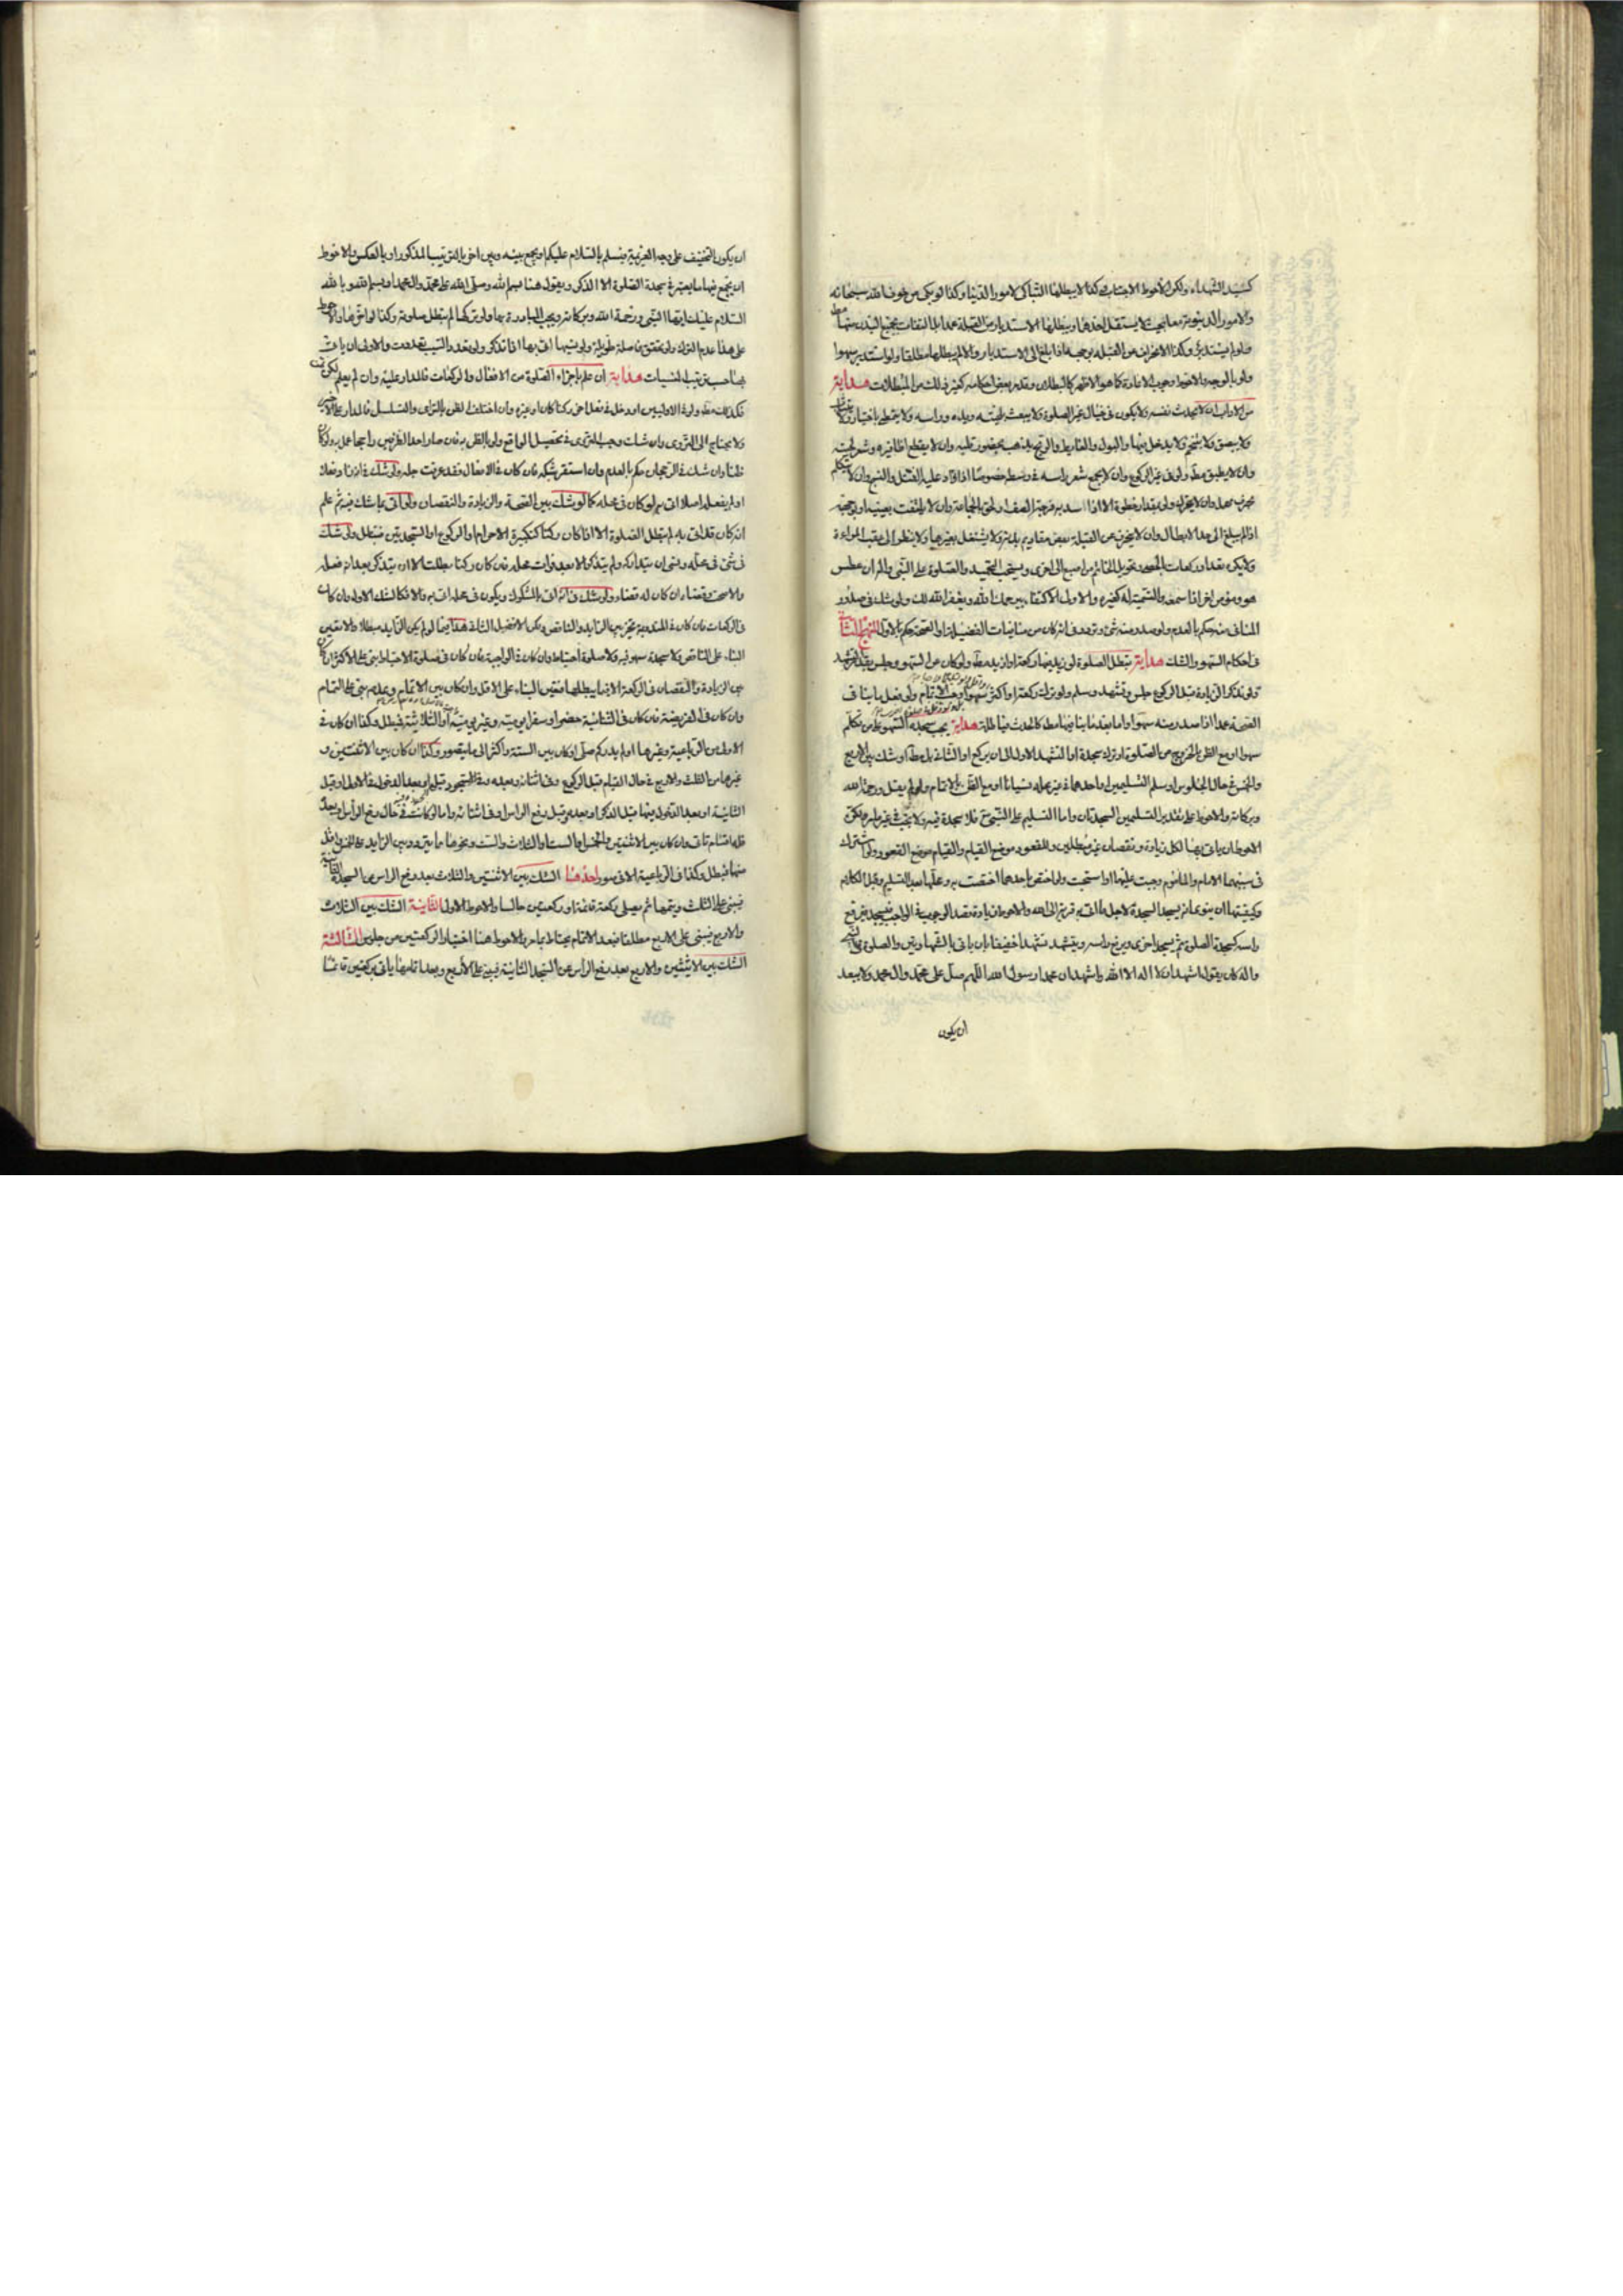 كسيد الشهداء ولكن الأحوط الاجتناب وكذا لا يبطلها التباكي لامور الدنيا وكذا لو بكى من خوف الله سبحانه
والامور الدنيوية معا بحيث لا يستقل احدهما ويبطلها الاستدبار من القبلة عمدا بالالتفات بجميع البدن عنها
ولو لم يستدبر وكذا الانحراف من القبلة بوجهه اذا بلغ الى الاستدبار والا لم يبطلها مطلقا ولو استدبر سهوا
ولو بالوجه والاحوط وجوب الاعادة كما هو الاظهر كالبطلان وقد مر بعض احكامه كغير ذلك من المبطلات هداية
من الاداب ان لا يحدث نفسه ولا يكون في خيال غير الصلوة ولا يعبث بلحيته ويده وراسه ولا يتمطى باختياره ولا
ولا يبصق ولا يتنخم ولا يدخل فيها والبول والغايط والريح يذهب بحضور قلبه وان لا يقطع اظافيره وشعر لحيته
وان لا يطبق ولو في غير الركوع وان لا يجمع شعر راسه في وسطه خصوصا اذا
بحرف مهمل وان لا يتحرك ولو بقدر خطوة الا اذا اسد به فرجة الصف او لحق بالجماعة وان لا يلتفت بعينيه او بوجهه
اذا لم يبلغ الى حد الابطال وان لا ينحرف عن القبلة ببعض مقاديم بدنه ولا يشتغل بغيرها ولا ينظر الى عقب المراءة
ولا يكره تعداد ركعات بالحصى وتحويل الخاتم من اصبع الى اخرى ويستحب التحميد والصلوة على النبي واله ان عطس
هو ومؤمن اخر اذا سمعه والتسميت له كغيره والاولى الاكتفاء بيرحمك الله ويغفر الله لك ولو شك في صدور
المنافي منه حكم بالعدم ولو صدر منه شيء وتردد في انه كان من منافيات الفضيلة او الصحة حكم بالاول المنهج الثاني
في احكام السهو والشك هداية تبطل الصلوة لو زيد فيها ركعة او ازيد مطلقا ولو كان عن السهو وجلس بقدر التشهد
ولو تذكر الزيادة قبل الركوع جلس وتشهد وسلم ولو ترك ركعة او اكثر سهوا وجب الاتمام ولو فعل ما ينافي
الصحة عمدا اذا صدر منه سهوا واما بعد ما ينافيها مطلقا كالحدث فباطلة هداية يجب سجدة السهو على من تكلم
سهوا او مع الظن بالخروج من الصلوة او ترك سجدة او التشهد الاول الى ان يركع او الثاني بل مطلقا او شك بين الاربع
والخمس في حال الجلوس او سلم التسليمين او احدهما في غير محله نسيانا او مع الظن بالاتمام ولو لم يقل ورحمة الله
وبركاته والاحوط على تقدير التسليمين السجدتان واما التسليم على النبي ص فلا سجدة فيه ولا يجب في غير ما مر ولكن
الاحوط ان ياتي بها لكل زيادة ونقصان غير مبطلين وللقعود موضع القيام والقيام موضع القعود ولو اشترك
في سببهما الامام والماموم وجبت عليهما او استحبت ولو اختص باحدهما اختصت به ومحلها بعد التسليم وقبل الكلام
وكيفيتها ان ينوي انه يسجد السجدة لاجل ما اتى به قربة الى الله والاحوط زيادة قصد الوجوب في الواجب فيسجد ثم يرفع
راسه كسجدة الصلوة ثم يسجد اخرى ويرفع راسه ويتشهد تشهدا خفيفا بان ياتي بالشهادتين والصلوة على النبي
واله كان يقول اشهد ان لا اله الا الله واشهد ان محمدا رسول الله اللهم صل على محمد وال محمد ولا يبعد
ان يكون
ان يكون التخفيف على وجه العزيمة ويسلم بالسلام عليكم او يجمع بينه وبين اخر بالترتيب المذكور او بالعكس والاحوط
ان يجمع فيها ما يعتبر في سجدة الصلوة الا الذكر ويقول هنا بسم الله وصلى الله على محمد وال محمد او بسم الله وبالله
السلام عليك ايها النبي ورحمة الله وبركاته ويجب المبادرة بها ولو تركها لم تبطل صلوته وكذا لو اخرها والاحوط
على هذا عدم الترك ولو تحقق فاصلة طويلة ولو نسيها اتى بها اذا تذكر ولو تعدد السبب تعددت والاولى ان ياتي
بها حسب ترتيب المنسيات هداية ان علم باجزاء الصلوة من الافعال والركعات فالمدار عليه وان لم يعلم لكن ظن
فكذلك مطلقا ولو في الاوليين او دخل في فعل اخر ركنا كان او غيره وان اختلف الظن بالتراخي والتسلسل فالمدار على الاخير
ولا يحتاج الى التروي وان شك وجب التروي في تحصيل الواقع ولو بالظن به فان صار احد الطرفين راجحا عمل به ولو كان
ظنا وان شك في الرجحان حكم بالعدم وان استقر شكه فان كان في الافعال فقد عرفت حله ولو شك في ان ما فعله
او لم يفعله اصلا اتى به لو كان في محله كما لو شك بين الصحة والزيادة والنقصان ولو اتى بما شك فيه ثم علم
انه كان قد اتى به لم تبطل الصلوة الا اذا كان ركنا كتكبيرة الاحرام او الركوع او السجدتين فتبطل ولو شك
في شيء في محله ونسي ان يتداركه ولم يتذكر الا بعد فوات محله فان كان ركنا بطلت الا ان يتذكر بعد انه فعله
والا صحت وقضاه ان كان له قضاء ولو شك في انه اتى بالمشكوك ويكون في محله اتى به والا فكالشك الاول وان كان
في الركعات فان كان في المندوبة تخير بين الزايد والناقص ولكن الافضل الثاني هذا فيما لو لم يكن الزايد مبطلا والا تعين
البناء على الناقص ولا سجدة سهو فيه ولا صلوة احتياط وان كان في الواجبة فان كان في صلوة الاحتياط بنى على الاكثر ان كان
بين الزيادة والنقصان في الركعة الا فيما يبطلها فتعين البناء على الاقل وان كان بين الاتمام وعدمه بنى على التمام
وان كان في الفريضة فان كان في الثنائية حضرا او سفرا يومية وغير يومية او الثلاثية فتبطل وكذا ان كان في
الاوليين من الرباعية وغيرها او لم يدر كم صلى او كان بين الستة واكثر الى ما يتصور وكذا ان كان بين الاثنتين و
غيرها من الثلث والاربع في حال القيام قبل الركوع وفي اثنائه وبعده وفي السجود قبله او بعد الدخول في الاولى او قبل
الثانية او بعد الدخول فيها قبل الذكر او بعده وقبل رفع الراس او في اثنائه واما لو كانت في حال رفع الراس او بعد
فله اقسام تاتي وان كان بين الاثنتين والخمس او الست او الثلاث والست ونحوها ما يتردد بين الزايد على الخمس واقل
منها فتبطل وكذا في الرباعية الا في صور احدها الشك بين الاثنتين والثلاث بعد رفع الراس من السجدة الثانية
فيبني على الثلث ويتمها ثم يصلي ركعة قائما او ركعتين جالسا والاحوط الاول الثانية الشك بين الثلاث
والاربع فيبني على الاربع مطلقا فبعد الاتمام يحتاط بما مر والاحوط هنا اختيار الركعتين من جلوس الثالثة
الشك بين الاثنتين والاربع بعد رفع الراس من السجدة الثانية فيبني على الاربع وبعد اتمامها ياتي بركعتين قائما